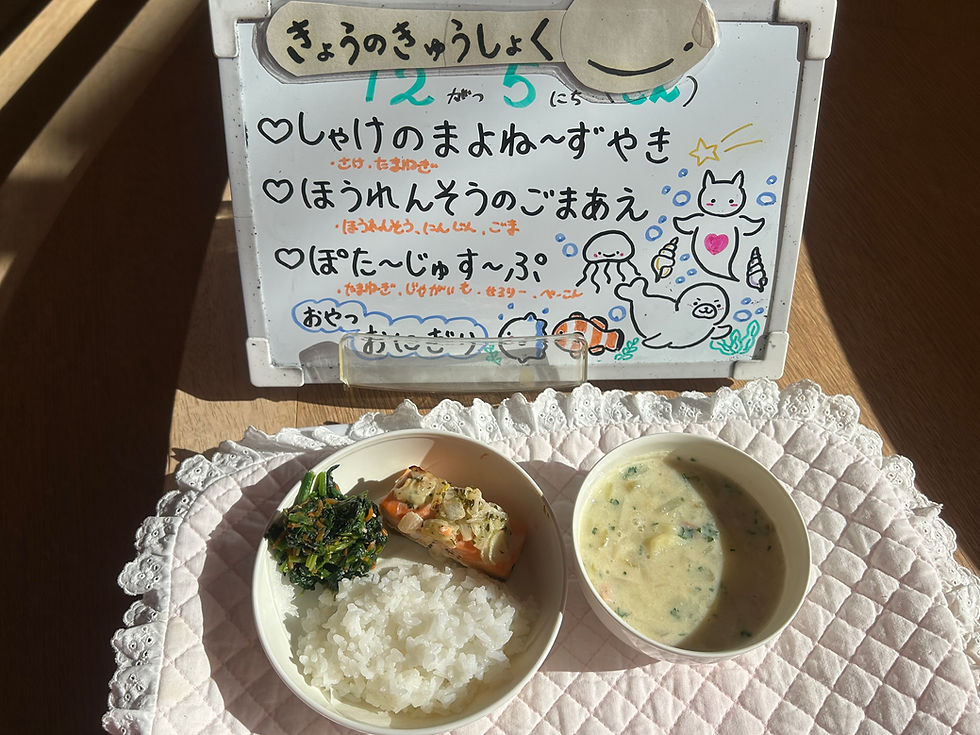 きょうのきゅうしょく
12がつ5にち(きん)
♡しゃけのまよね〜ずやき
・さけ・たまねぎ
♡ほうれんそうのごまあえ
・ほうれんそう、にんじん、ごま
♡ぽた〜じゅす〜ぷ
・たまねぎ、じゃがいも・せろりー、べーこん
おやつ
おにぎり